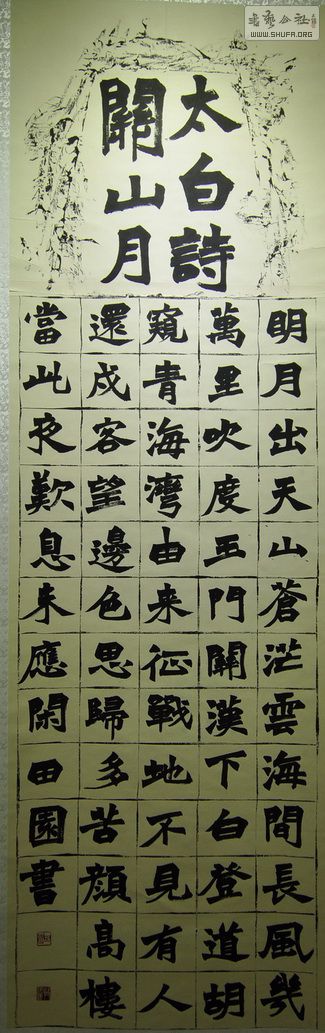 太白詩
關山月
明月出天山蒼茫雲海間長風幾
萬里吹度玉門關漢下白登道胡
窺青海灣由來征戰地不見有人
還戍客望邊色思歸多苦顏高樓
當此夜歎息未應閑田園書
書藝公社
WWW.SHUFA.ORG